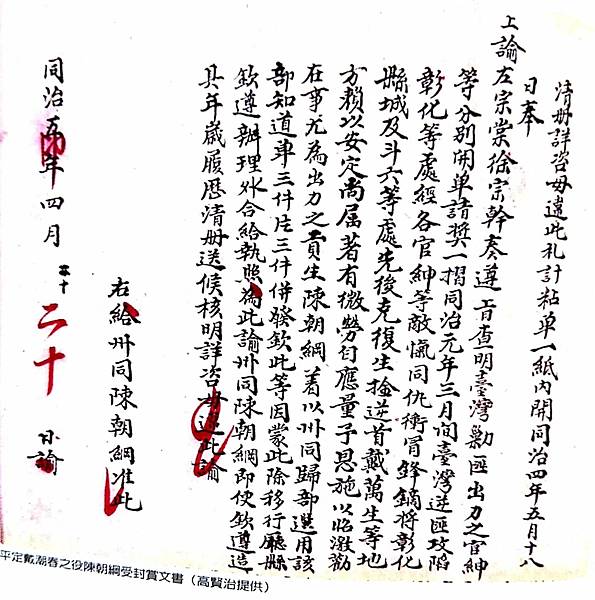 清册詳咨毋違此札計粘单一紙內開同治四年五月十八
日奉
上諭左宗棠徐宗幹奏遵旨查明臺灣勦匪出力之官紳
等分别開单請奬一摺同治元年三月间臺灣逆匪攻陷
彰化等處經各官紳等敵愾同仇衝冒鋒鏑將彰化
縣城及斗六等處先後克復生擒逆首戴萬生等地
方賴以安定尚屬著有微勞自應量予恩施以昭激勸
在事尤為出力之貢生陳朝綱着以州同歸部選用該
部知道单三件片三件併發欽此等因蒙此除移行廳縣
欽遵辦理外合給執照為此諭州同陳朝綱即便欽遵造
具年歲履歷清册送候核明詳咨毋違此諭
右給州同陳朝綱准此
同治五年四月 二十 日諭
平定戴潮春之役陳朝綱受封賞文書（高賢治提供）